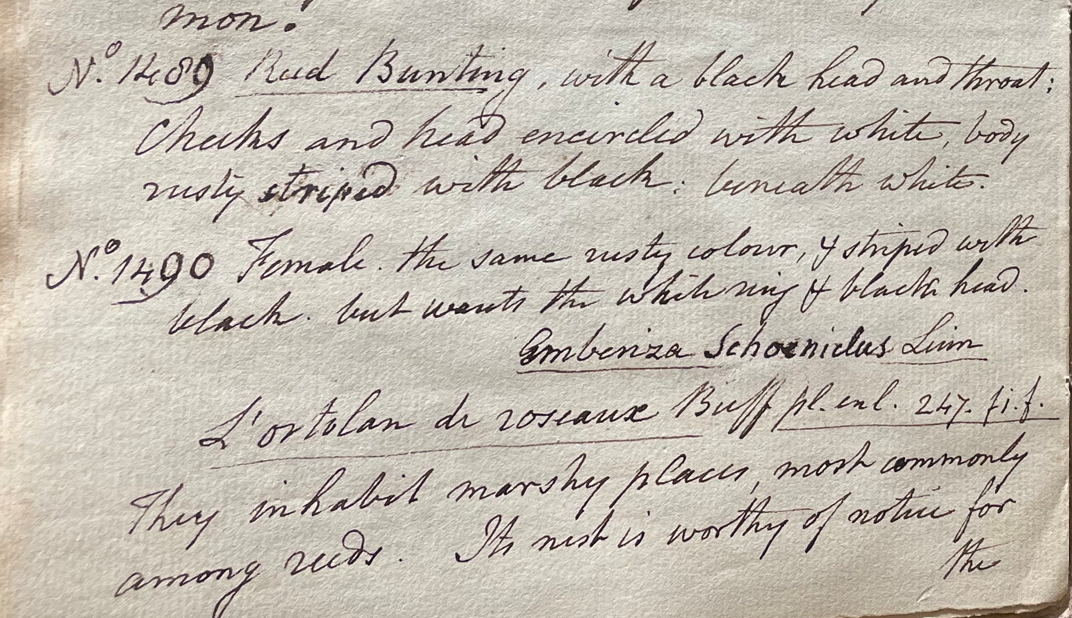 mon.
No. 1489 Reed Bunting, with a black head and throat;
Cheeks and head encircled with white, body
rusty striped with black: beneath white.
No. 1490 Female. the same rusty colour, & striped with
black. but wants the white ring & black head.
Emberiza Schoeniclus Linn
L'ortolan de roseaux Buff pl. enl. 247. fi. f.
They inhabit marshy places, most commonly
among reeds. Its nest is worthy of notice for
the